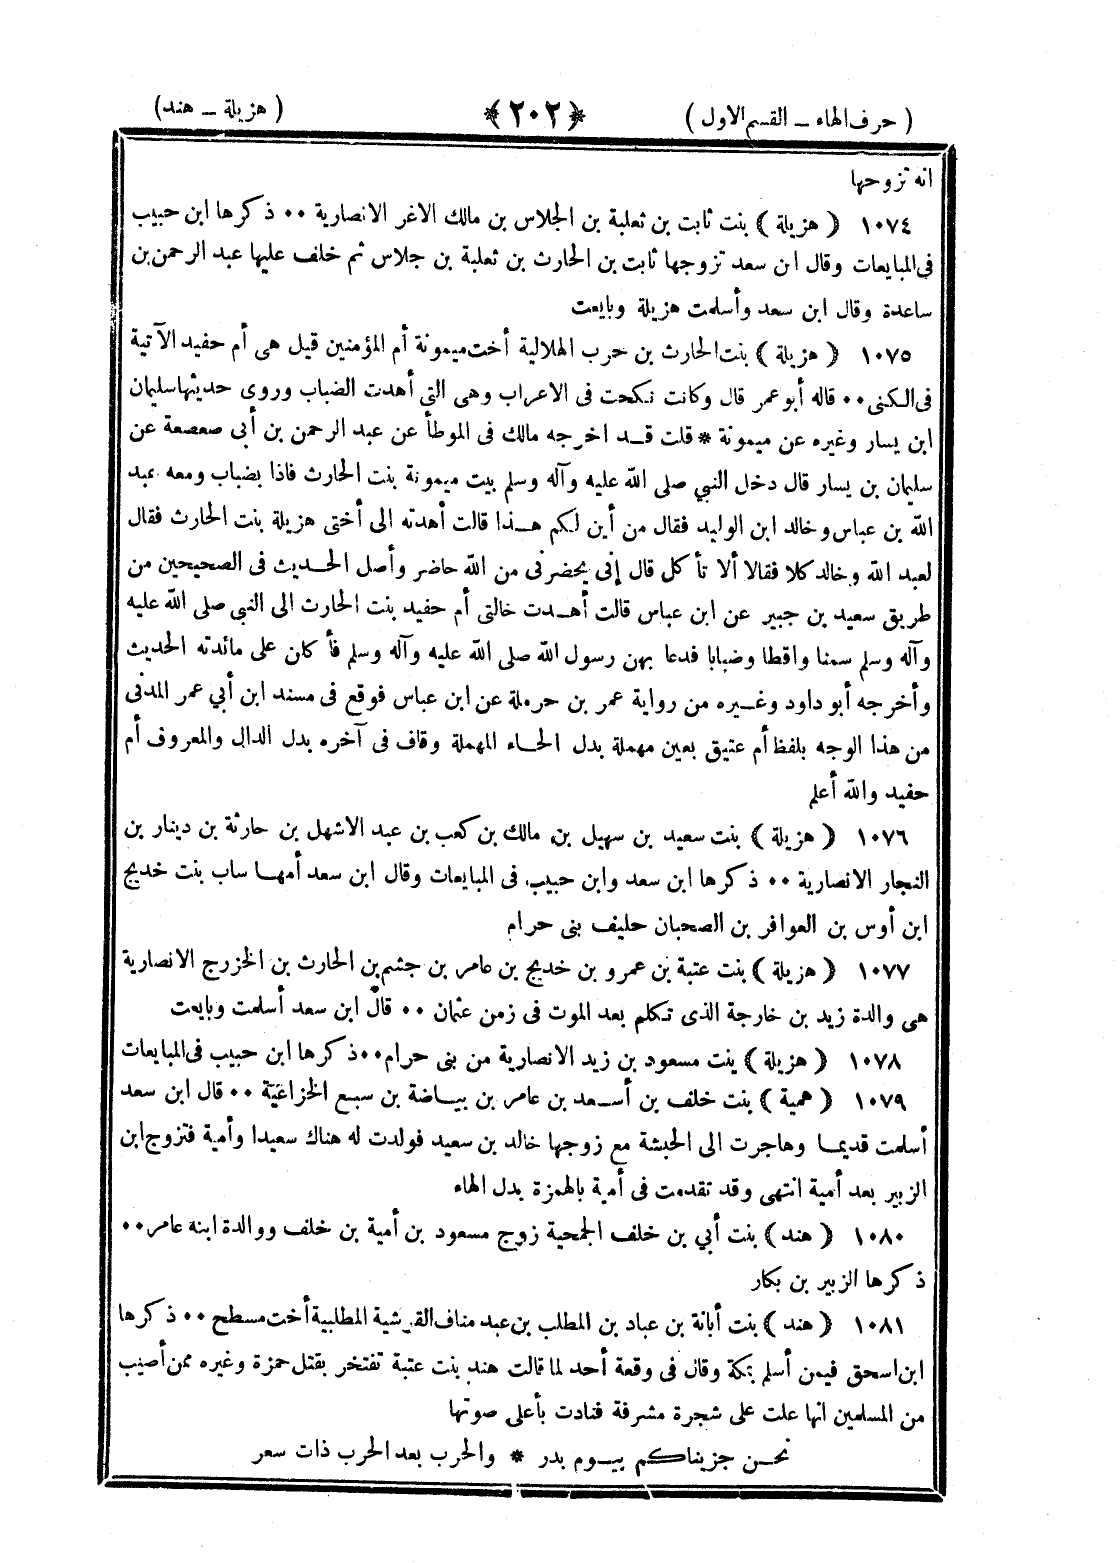 ( حرف الهاء ــ القسم الاول )
﴿٢٠٢﴾
( هزيلة ــ هند )
انه تزوجها
١٠٧٤ ( هزيلة ) بنت ثابت بن ثعلبة بن الجلاس بن مالك الاغر الانصارية ٠٠ ذكرها ابن حبيب
فى المبايعات وقال ابن سعد تزوجها ثابت بن الحارث بن ثعلبة بن جلاس ثم خلف عليها عبد الرحمن بن
ساعدة وقال ابن سعد وأسلمت هزيلة وبايعت
١٠٧٥ ( هزيلة ) بنت الحارث بن حرب الهلالية أخت ميمونة أم المؤمنين قيل هى أم حفيد الآتية
فى الكنى ٠٠ قاله أبو عمر قال وكانت نكحت فى الاعراب وهى التى أهدت الضباب وروى حديثها سليمان
ابن يسار وغيره عن ميمونة * قلت قد اخرجه مالك فى الموطأ عن عبد الرحمن بن أبى صعصعة عن
سليمان بن يسار قال دخل النبي صلى الله عليه وآله وسلم بيت ميمونة بنت الحارث فاذا بضباب ومعه عبد
الله بن عباس وخالد ابن الوليد فقال من أين لكم هذا قالت أهدته الى أختى هزيلة بنت الحارث فقال
لعبد الله وخالد كلا فقالا ألا تأكل قال إنى يحضرنى من الله حاضر وأصل الحديث فى الصحيحين من
طريق سعيد بن جبير عن ابن عباس قالت أهدت خالتى أم حفيد بنت الحارث الى النبي صلى الله عليه
وآله وسلم سمنا واقطا وضبابا فدعا بهن رسول الله صلى الله عليه وآله وسلم فأكان على مائدته الحديث
وأخرجه أبو داود وغيره من رواية عمر بن حرملة عن ابن عباس فوقع فى مسند ابن أبي عمر المدنى
من هذا الوجه بلفظ أم عتيق بعين مهملة بدل الحاء المهملة وقاف فى آخره بدل الدال والمعروف أم
حفيد والله أعلم
١٠٧٦ ( هزيلة ) بنت سعيد بن سهيل بن مالك بن كعب بن عبد الاشهل بن حارثة بن دينار بن
النجار الانصارية ٠٠ ذكرها ابن سعد وابن حبيب فى المبايعات وقال ابن سعد أمها ساب بنت خديج
ابن أوس بن العوافر بن الصحبان حليف بنى حرام
١٠٧٧ ( هزيلة ) بنت عتبة بن عمرو بن خديج بن عامر بن جشم بن الحارث بن الخزرج الانصارية
هى والدة زيد بن خارجة الذى تكلم بعد الموت فى زمن عثمان ٠٠ قال ابن سعد أسلمت وبايعت
١٠٧٨ ( هزيلة ) بنت مسعود بن زيد الانصارية من بنى حرام ٠٠ ذكرها ابن حبيب فى المبايعات
١٠٧٩ ( همية ) بنت خلف بن أسعد بن عامر بن بياضة بن سبع الخزاعية ٠٠ قال ابن سعد
أسلمت قديما وهاجرت الى الحبشة مع زوجها خالد بن سعيد فولدت له هناك سعيدا وأمية فتزوج ابن
الزبير بعد أمية انتهى وقد تقدمت فى أمية بالهمزة بدل الهاء
١٠٨٠ ( هند ) بنت أبي بن خلف الجمحية زوج مسعود بن أمية بن خلف ووالدة ابنه عامر ٠٠
ذكرها الزبير بن بكار
١٠٨١ ( هند ) بنت أبانة بن عباد بن المطلب بن عبد مناف القرشية المطلبية أخت مسطح ٠٠ ذكرها
ابن اسحق فيمن أسلم بمكة وقال فى وقعة أحد لما قالت هند بنت عتبة تفتخر بقتل حمزة وغيره ممن أصيب
من المسلمين انها علت على شجرة مشرفة فنادت بأعلى صوتها
نحن جزيناكم بيوم بدر * والحرب بعد الحرب ذات سعر